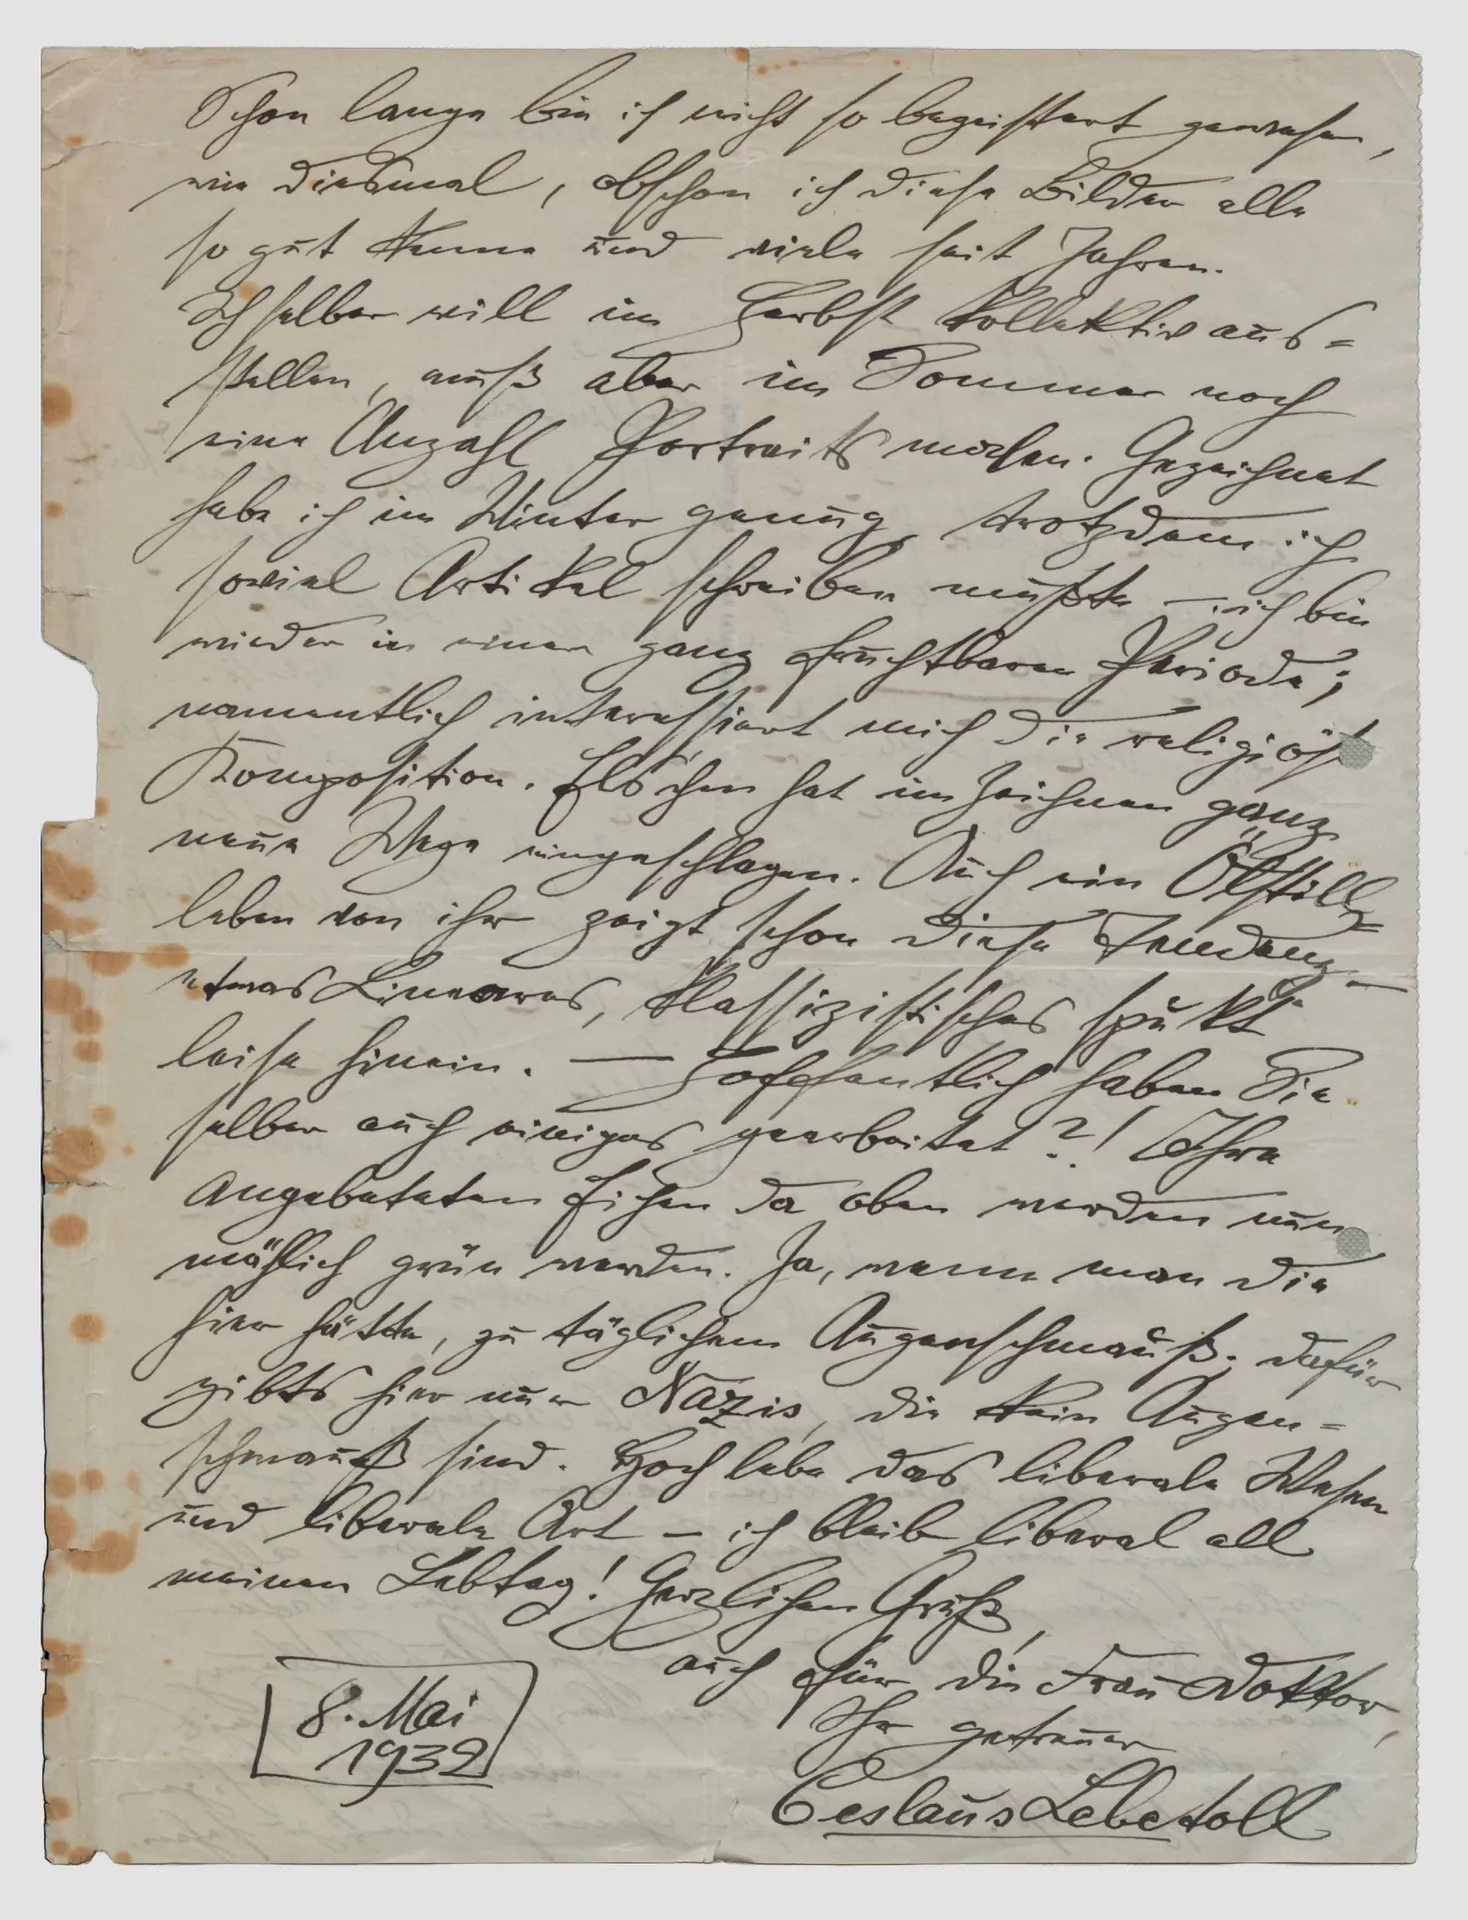 Schon lange bin ich nicht so begeistert gewesen,
wie diesmal, obschon ich diese Bilder alle
so gut kenne und viele seit Jahren.
Ich selber will im Herbst kollektiv aus=
stellen, muß aber im Sommer noch
eine Anzahl Portraits machen. Gezeichnet
habe ich im Winter genug, trotzdem ich
soviel Artikel schreiben mußte – ich bin
wieder in einer ganz fruchtbaren Periode;
namentlich interessiert mich die religiöse
Komposition. Elschen hat im Zeichnen ganz
neue Wege eingeschlagen. Auch ein Ölstill=
leben von ihr zeigt schon diese Tendenz –
etwas Lineares, klassizistisches spukt
leise hinein. — Hoffentlich haben Sie
selber auch einiges gearbeitet?! Ihre
angebeteten Eichen da oben werden nun
mählich grün werden. Ja, wenn man die
hier hätte, zu täglichem Augenschmauß. dafür
gibts hier nur Nazis, die kein Augen=
schmauß sind. Hoch lebe das liberale Wesen
und liberale Art – ich bleibe liberal all
meinen Lebtag! Herzlichen Gruß,
auch für die Frau Doktor,
Ihr getreuer
Ceslaus
8. Mai
1932